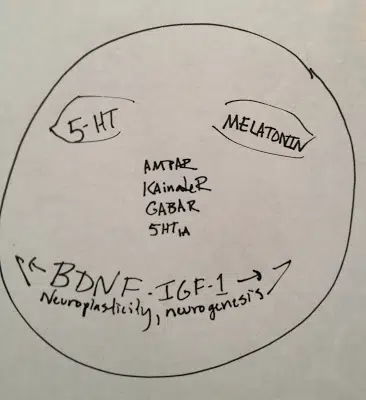 5-HT
MELATONIN
AMPAR
KAinateR
GABAR
5HT1A
← BDNF-IGF-1 →
Neuroplasticity, neurogenesis